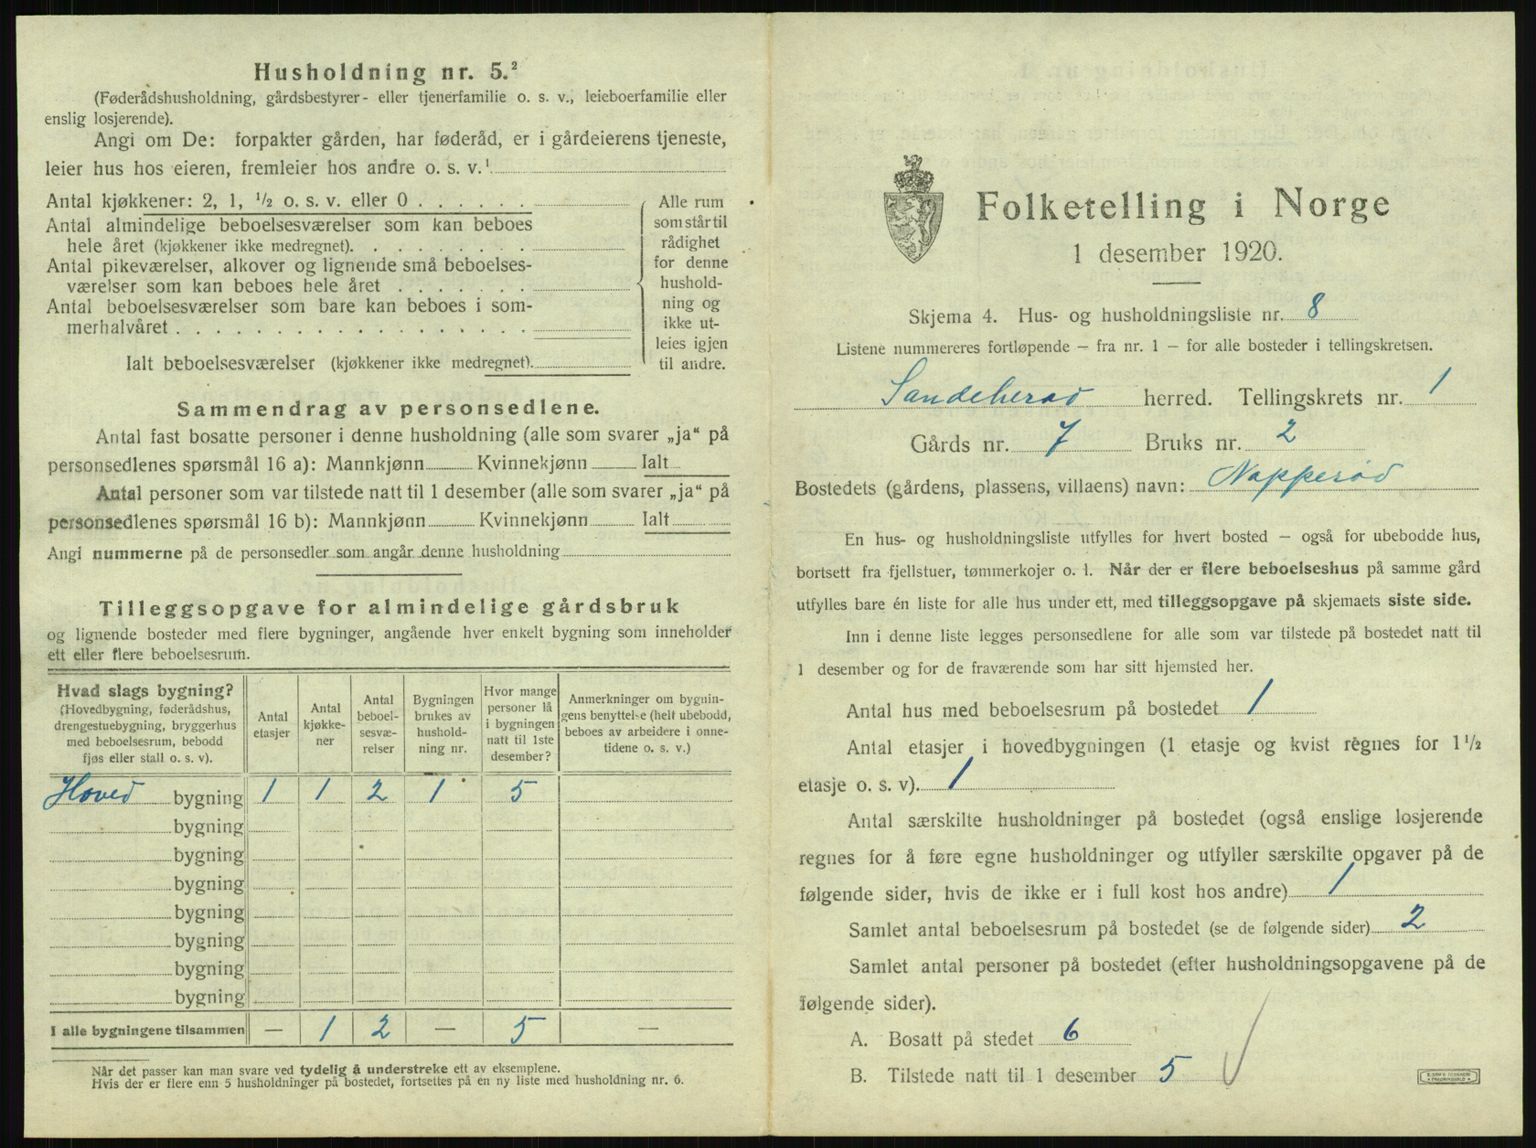 Husholdning nr. 5.²
(Føderådshusholdning, gårdsbestyrer- eller tjenerfamilie o. s. v., leieboerfamilie eller
enslig losjerende).
Angi om De: forpakter gården, har føderåd, er i gårdeierens tjeneste,
leier hus hos eieren, fremleier hos andre o. s. v.¹
Antal kjøkkener: 2, 1, ½ o. s. v. eller 0 . . . . . .
Antal almindelige beboelsesværelser som kan beboes
hele året (kjøkkener ikke medregnet). . . . . . . . .
Antal pikeværelser, alkover og lignende små beboelses-
værelser som kan beboes hele året . . . . . . .
Antal beboelsesværelser som bare kan beboes i som-
merhalvåret . . . . . . . . . . . . . . . . .
Ialt beboelsesværelser (kjøkkener ikke medregnet).
Alle rum
som står til
rådighet
for denne
hushold-
ning og
ikke ut-
leies igjen
til andre.
Sammendrag av personsedlene.
Antal fast bosatte personer i denne husholdning (alle som svarer „ja" på
personsedlenes spørsmål 16 a): Mannkjønn Kvinnekjønn Ialt
Antal personer som var tilstede natt til 1 desember (alle som svarer „ja" på
personsedlenes spørsmål 16 b): Mannkjønn Kvinnekjønn Ialt
Angi nummerne på de personsedler som angår denne husholdning
Tilleggsopgave for almindelige gårdsbruk
og lignende bosteder med flere bygninger, angående hver enkelt bygning som inneholder
ett eller flere beboelsesrum.
Hvad slags bygning?
(Hovedbygning, føderådshus,
drengestuebygning, bryggerhus
med beboelsesrum, bebodd
fjøs eller stall o. s. v).
Antal
etasjer
Antal
kjøkke-
ner
Antal
beboel-
sesvæ-
relser
Bygningen
brukes av
hushold-
ning nr.
Hvor mange
personer lå
i bygningen
natt til 1ste
desember?
Anmerkninger om bygnin-
gens benyttelse (helt ubebodd,
beboes av arbeidere i onne-
tidene o. s. v.)
Hoved bygning 1 1 2 1 5
bygning
bygning
bygning
bygning
bygning
bygning
bygning
I alle bygningene tilsammen — 1 2 — 5 —
Når det passer kan man svare ved tydelig å understreke ett av eksemplene.
Hvis der er flere enn 5 husholdninger på bostedet, fortsettes på en ny liste med husholdning nr. 6.
Folketelling i Norge
1 desember 1920.
Skjema 4. Hus- og husholdningsliste nr. 8
Listene nummereres fortløpende — fra nr. 1 — for alle bosteder i tellingskretsen.
Sandeherad herred. Tellingskrets nr. 1
Gårds nr. 7 Bruks nr. 2
Bostedets (gårdens, plassens, villaens) navn: Napperød
En hus- og husholdningsliste utfylles for hvert bosted — også for ubebodde hus,
bortsett fra fjellstuer, tømmerkojer o. l. Når der er flere beboelseshus på samme gård
utfylles bare én liste for alle hus under ett, med tilleggsopgave på skjemaets siste side.
Inn i denne liste legges personsedlene for alle som var tilstede på bostedet natt til
1 desember og for de fraværende som har sitt hjemsted her.
Antal hus med beboelsesrum på bostedet 1
Antal etasjer i hovedbygningen (1 etasje og kvist regnes for 1½
etasje o. s. v). 1
Antal særskilte husholdninger på bostedet (også enslige losjerende
regnes for å føre egne husholdninger og utfyller særskilte opgaver på de
følgende sider, hvis de ikke er i full kost hos andre) 1
Samlet antal beboelsesrum på bostedet (se de følgende sider) 2
Samlet antal personer på bostedet (efter husholdningsopgavene på de
følgende sider).
A. Bosatt på stedet 6
B. Tilstede natt til 1 desember 5